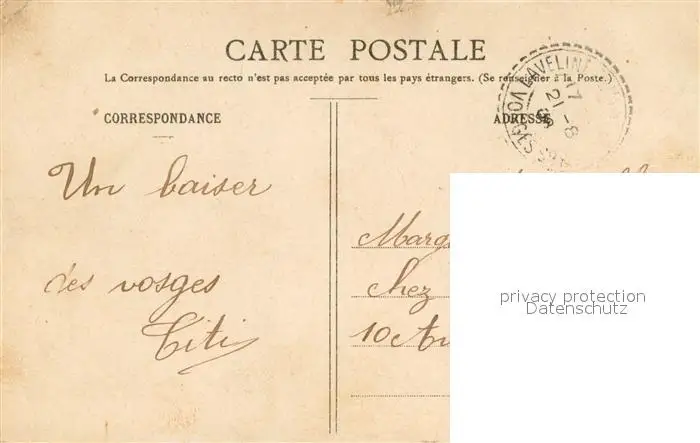 CARTE POSTALE
La Correspondance au recto n'est pas acceptée par tous les pays étrangers. (Se renseigner à la Poste.)
CORRESPONDANCE
ADRESSE
LAVELINE
VOSGES
21 -8
Un baiser
des vosges
Titi
Marg
chez
10 Av
privacy protection
Datenschutz